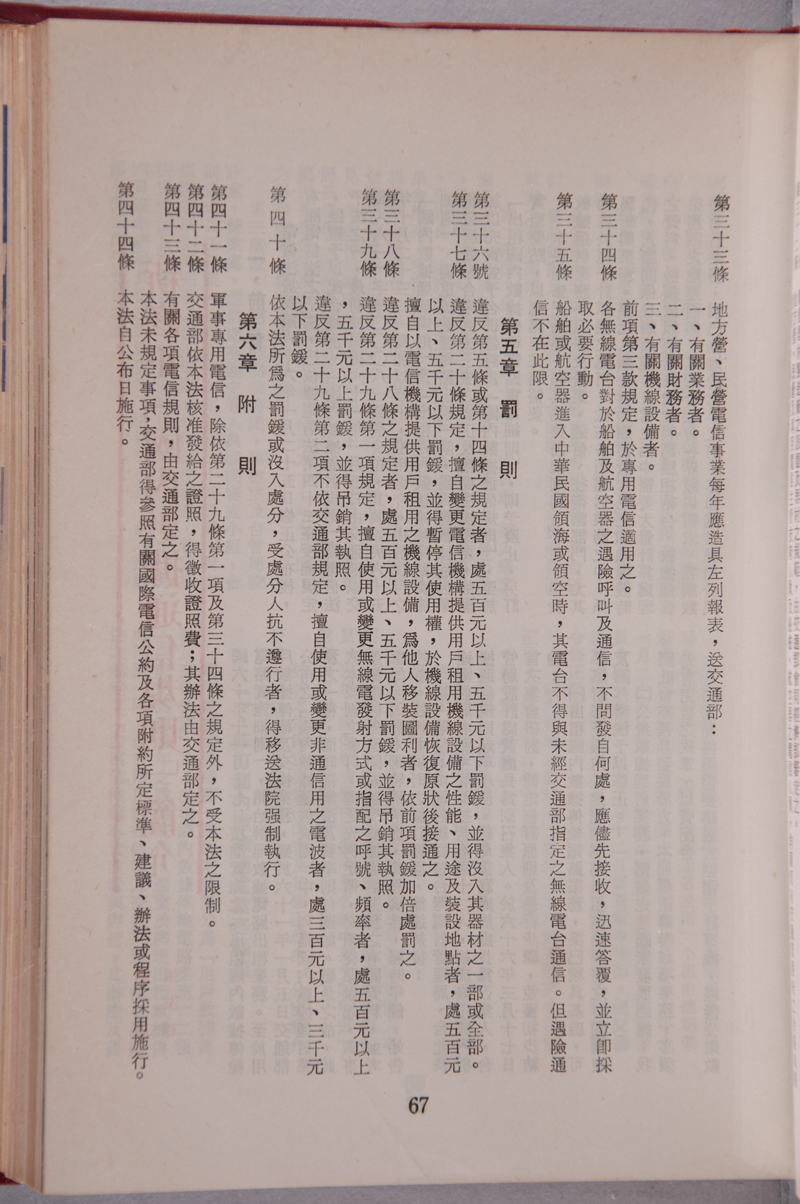 第三十三條　地方營、民營電信事業每年應造具左列報表，送交通部：
一、有關業務者。
二、有關財務者。
三、有關機線設備者。
前項第三款規定，於專用電信適用之。
第三十四條　各無線電台對於船舶及航空器之遇險呼叫及通信，不問發自何處，應儘先接收，迅速答覆，並立卽採
取必要行動。
第三十五條　船舶或航空器進入中華民國領海或領空時，其電台不得與未經交通部指定之無線電台通信。但遇險通
信不在此限。
第五章　罰　則
第三十六號　違反第五條或第十四條之規定者，處五百元以上、五千元以下罰鍰，並得沒入其器材之一部或全部。
第三十七條　違反第二十條規定，擅自變更電信機構提供用戶租用機線設備之性能、用途及裝設地點者，處五百元
以上、五千元以下罰鍰，並得暫停其使用權，於機線設備恢復原狀後接通之。
擅自以電信機構提供用戶租用之機線設備，爲他人移裝圖利者，依前項罰鍰加倍處罰之。
第三十八條　違反第二十八條之規定者，處五百元以上、五千元以下罰鍰，並得吊銷其執照。
第三十九條　違反第二十九條第一項規定，擅自使用或變更無線電發射方式或指配之呼號、頻率者，處五百元以上
，五千元以上罰鍰，並得吊銷其執照。
違反第二十九條第二項不依交通部規定，擅自使用或變更非通信用之電波者，處三百元以上、三千元
以下罰鍰。
第四十條　依本法所爲之罰鍰或沒入處分，受處分人抗不遵行者，得移送法院强制執行。
第六章　附　則
第四十一條　軍事專用電信，除依第二十九條第一項及第三十四條之規定外，不受本法之限制。
第四十二條　交通部依本法核准發給之證照，得徵收證照費；其辦法由交通部定之。
第四十三條　有關各項電信規則，由交通部定之。
本法未規定事項，交通部得參照有關國際電信公約及各項附約所定標準、建議、辦法或程序採用施行。
第四十四條　本法自公布日施行。
67